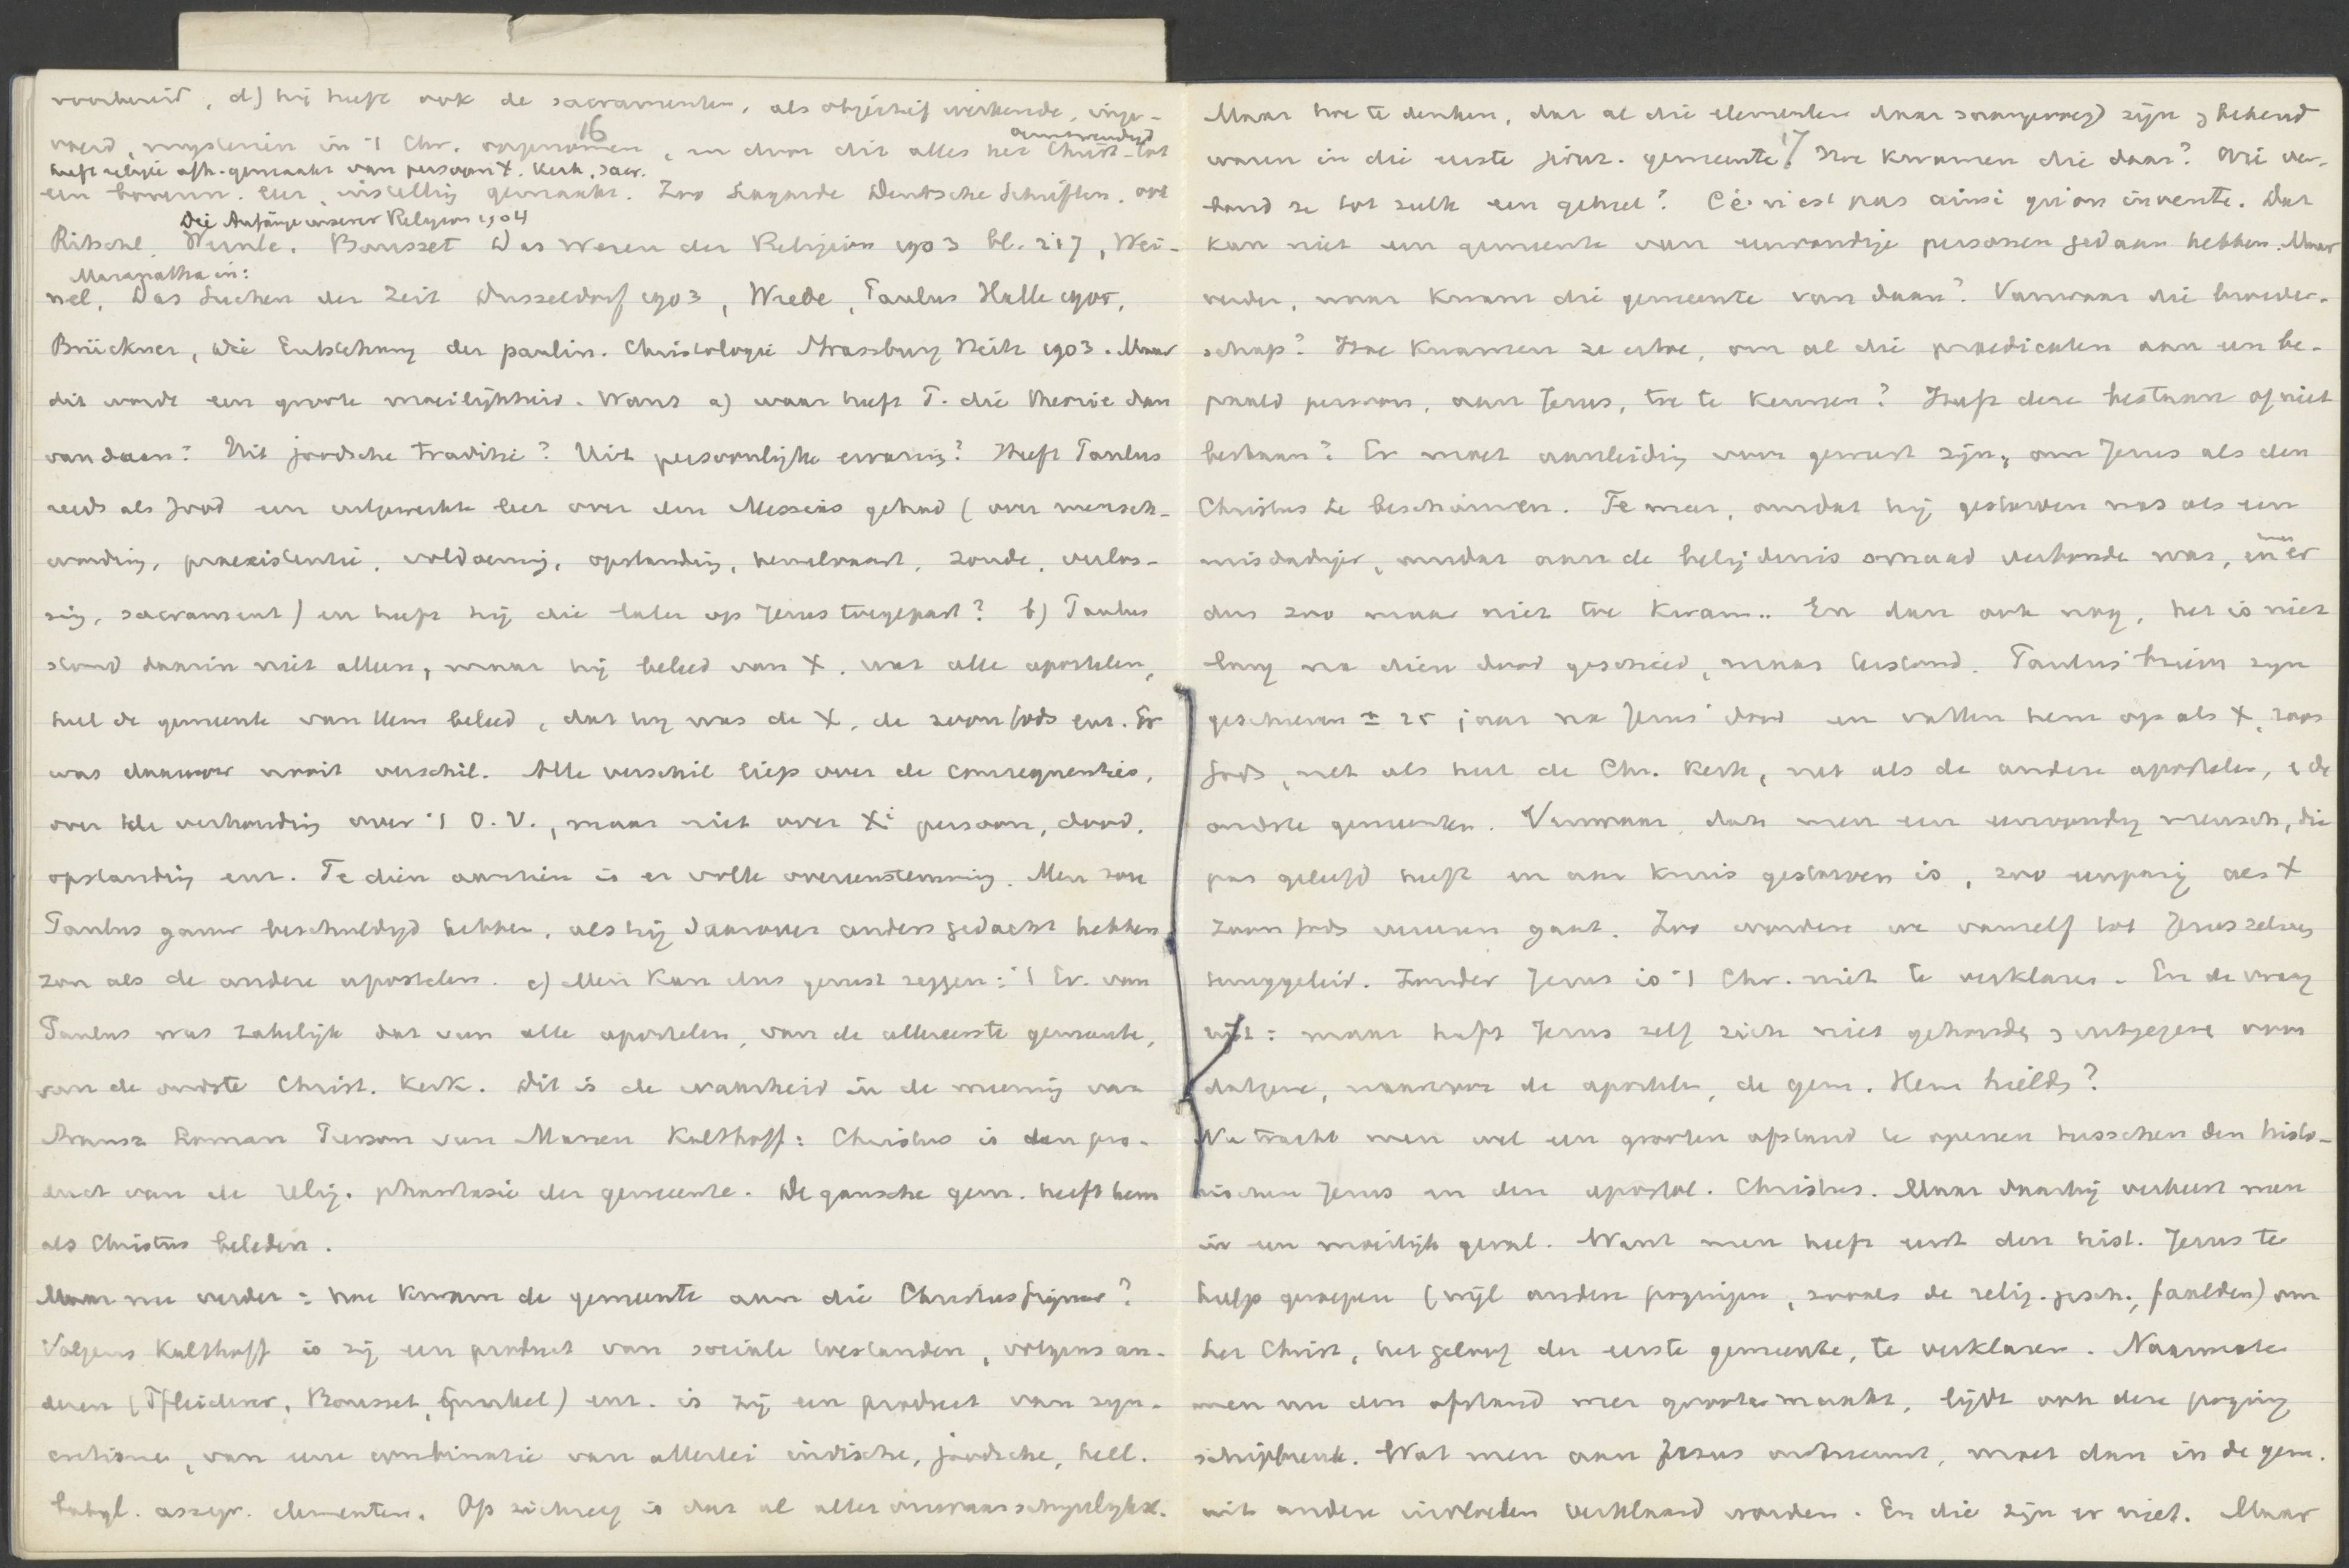 voorbereid, d) hij heeft ook de sacramenten, als objectief werkende, inge-
16
voerd, mysterien in 't Chr. opgenomen, en door dit alles het Christ. tot
heeft religie afh. gemaakt van persoon X. Kerk, sacr.
een bovenn. leer, instelling gemaakt. Zoo Lagarde Deutsche Schriften, ook
Die Anfänge unserer Religion 1904
Ritschl, Wernle, Bousset Das Wesen der Religion 1903 bl. 217, Wei-
Maranatha in:
nel, Das Suchen der Zeit Dusseldorf 1903, Wrede, Paulus Halle 1905,
Brückner, Die Entstehung der paulin. Christologie Strassburg Heitz 1903. Maar
dit wordt een groote moeilijkheid. Want a) waar heeft P. die theorie dan
vandaan? Uit joodsche traditie? Uit persoonlijke ervaring? Heeft Paulus
reeds als Jood een uitgewerkte leer over den Messias gehad (over mensch-
wording, praeexistentie, voldoening, opstanding, hemelvaart, zonde, verlos-
sing, sacrament) en heeft hij die later op Jezus toegepast? b) Paulus
stond daarin niet alleen, maar hij beleed van X. wat alle apostelen,
heel de gemeente van Hem beleed, dat hij was de X, de zoon Gods enz. Er
was daarover nooit verschil. Alle verschil liep over de consequenties,
over de verhouding over 't O.V., maar niet over Xi persoon, dood,
opstanding enz. Te dien aanzien is er volle overeenstemming. Men zou
Paulus gauw beschuldigd hebben, als hij daarover anders gedacht hebben
zou als de andere apostelen. c) Men kan dus gerust zeggen: 't Ev. van
Paulus was zakelijk dat van alle apostelen, van de allereerste gemeente,
van de oudste Christ. Kerk. Dit is de waarheid in de meening van
Strausz Loman Pierson van Manen Kalthoff: Christus is een pro-
duct van de relig. phantasie der gemeente. De gansche gem. heeft hem
als Christus beleden.
Maar nu verder: hoe kwam de gemeente aan die Christusfiguur?
Volgens Kalthoff is zij een product van sociale toestanden, volgens an-
deren (Pfleiderer, Bousset, Gunkel) enz. is zij een product van syn-
cretisme, van eene combinatie van allerlei indische, joodsche, hell.
babyl. assyr. elementen. Op zichzelf is dat al aller onwaarschijnlijkst.
Maar hoe te denken, dat al die elementen daar saamgevoegd zijn & bekend
17
waren in die eerste jeruz. gemeente? Hoe kwamen die daar? Wie ver-
bond ze tot zulk een geheel? Ce n'est pas ainsi qu'on invente. Dat
kan niet een gemeente van eenvoudige personen gedaan hebben. Maar
verder, waar kwam die gemeente van daan? Vanwaar die broeder-
schap? Hoe kwamen ze ertoe, om al die praedicaten aan een be-
paald persoon, aan Jezus, toe te kennen? Heeft deze bestaan of niet
bestaan? Er moet aanleiding voor geweest zijn, om Jezus als den
Christus te beschouwen. Te meer, omdat hij gestorven was als een
misdadiger, omdat aan de belijdenis smaad verbonde was, en men er
dus zoo maar niet toe kwam.. En dan ook nog, het is niet
lang na dien dood geschied, maar terstond. Paulus' brieven zijn
geschreven ± 25 jaar na Jezus' dood en vatten hem op als X, zoon
Gods, net als heel de Chr. Kerk, net als de andere apostelen, & de
oudste gemeenten. Vanwaar, dat men een eenvoudig mensch, die
pas geleefd heeft en aan kruis gestorven is, zoo eenparig als X
zoon Gods vereeren gaat. Zoo worden we vanzelf tot Jezus zelven
teruggeleid. Zonder Jezus is 't Chr. niet te verklaren. En de vraag
rijst: maar heeft Jezus zelf zich niet gehouden & uitgegeven voor
datgene, waarvoor de apostelen, de gem. Hem hielden?
Nu tracht men wel een grooten afstand te openen tusschen den histo-
rischen Jezus en den apostol. Christus. Maar daarbij verkeert men
in een moeilijk geval. Want men heeft eerst den hist. Jezus te
hulp geroepen (wijl andere pogingen, zooals de relig. gesch., faalden) om
het Christ., het geloof der eerste gemeente, te verklaren. Naarmate
men nu den afstand meer grooter maakt, lijdt ook deze poging
schipbreuk. Wat men aan Jezus ontneemt, moet dan in de gem.
uit andere invloeden verklaard worden. En die zijn er niet. Maar